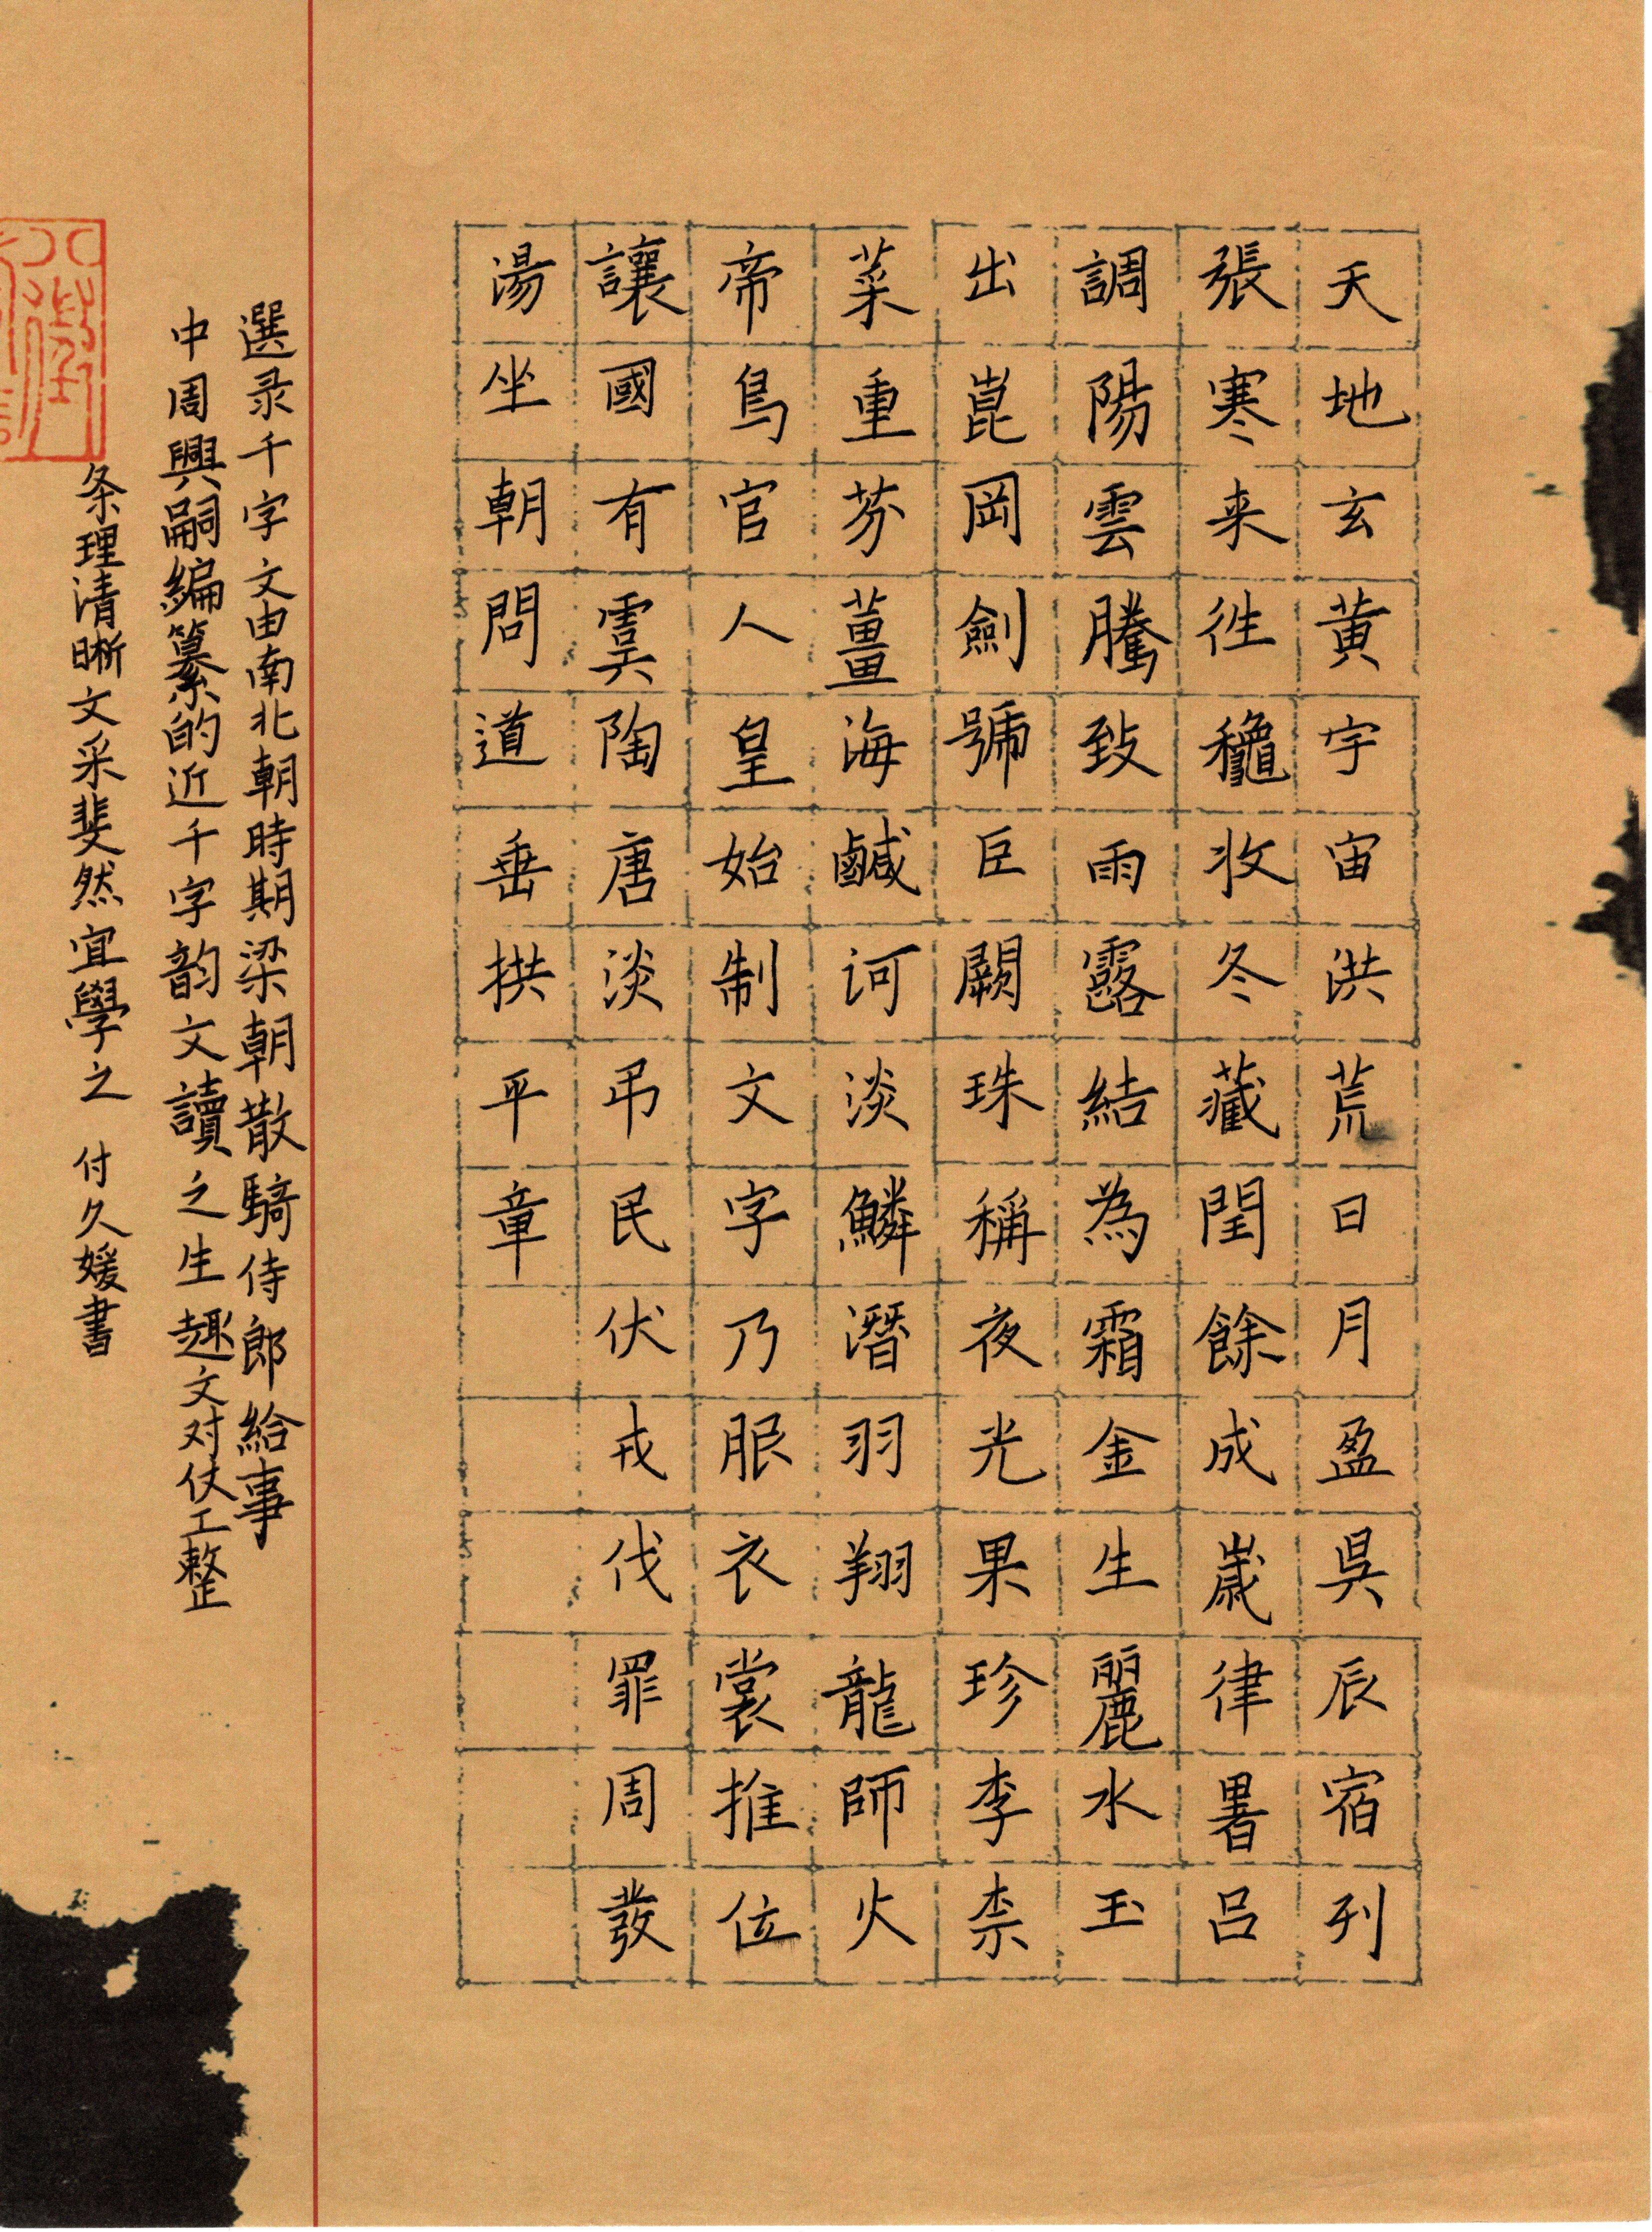 天地玄黃宇宙洪荒日月盈昃辰宿列
張寒来徃龝收冬藏閏餘成歲律呂
調陽雲騰致雨露結為霜金生麗水玉
出崑岡劍號巨闕珠稱夜光果珍李柰
菜重芥薑海鹹河淡鱗潛羽翔龍師火
帝鳥官人皇始制文字乃服衣裳推位
讓國有虞陶唐淡弔民伏戎伐罪周發
湯坐朝問道垂拱平章
選录千字文由南北朝時期梁朝散騎侍郎給事
中周興嗣編纂的近千字韵文讀之生趣文对仗工整
条理清晰文采斐然宜學之 付久媛書